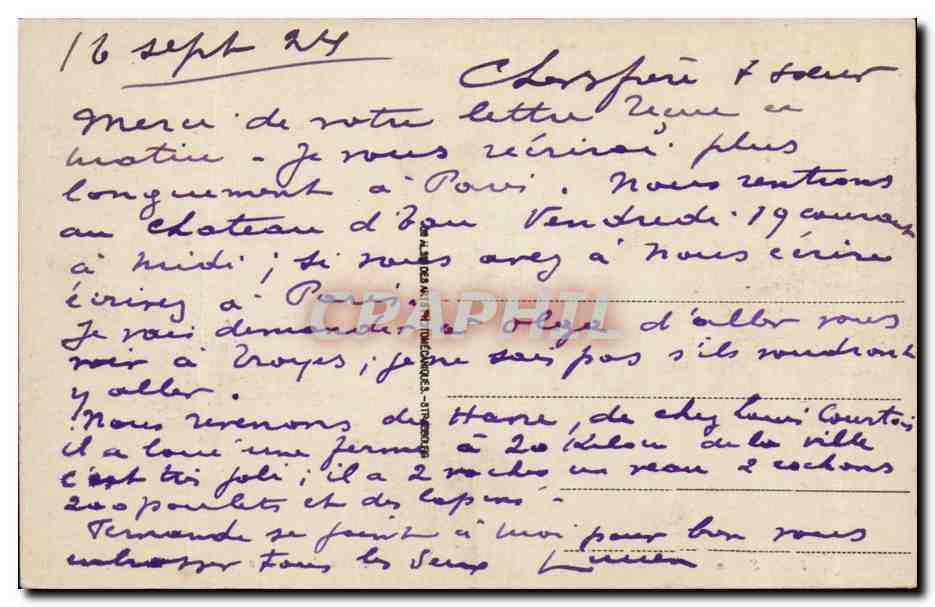 16 sept 24
Chers frère & sœur
Merci de votre lettre reçue ce
matin - Je vous récrirai plus
longuement à Paris. Nous rentrons
au chateau d'Eau Vendredi 19 courant
à midi ; si vous avez à nous écrire
écrivez à Paris.
Je vais demander à Olga d'aller vous
voir à Troyes ; je ne sais pas s'ils voudront
y aller.
Nous revenons du Havre, de chez Louis Courtois
il a loué une ferme à 20 Kilom de la ville
c'est très joli ; il a 2 vaches un veau 2 cochons
200 poulets et des lapins -
Fernande se joint à moi pour bon vous
embrasser tous les deux Lucien
CRAPHIL
DES ARTS PHOTOMÉCANIQUES. - STRASBOURG